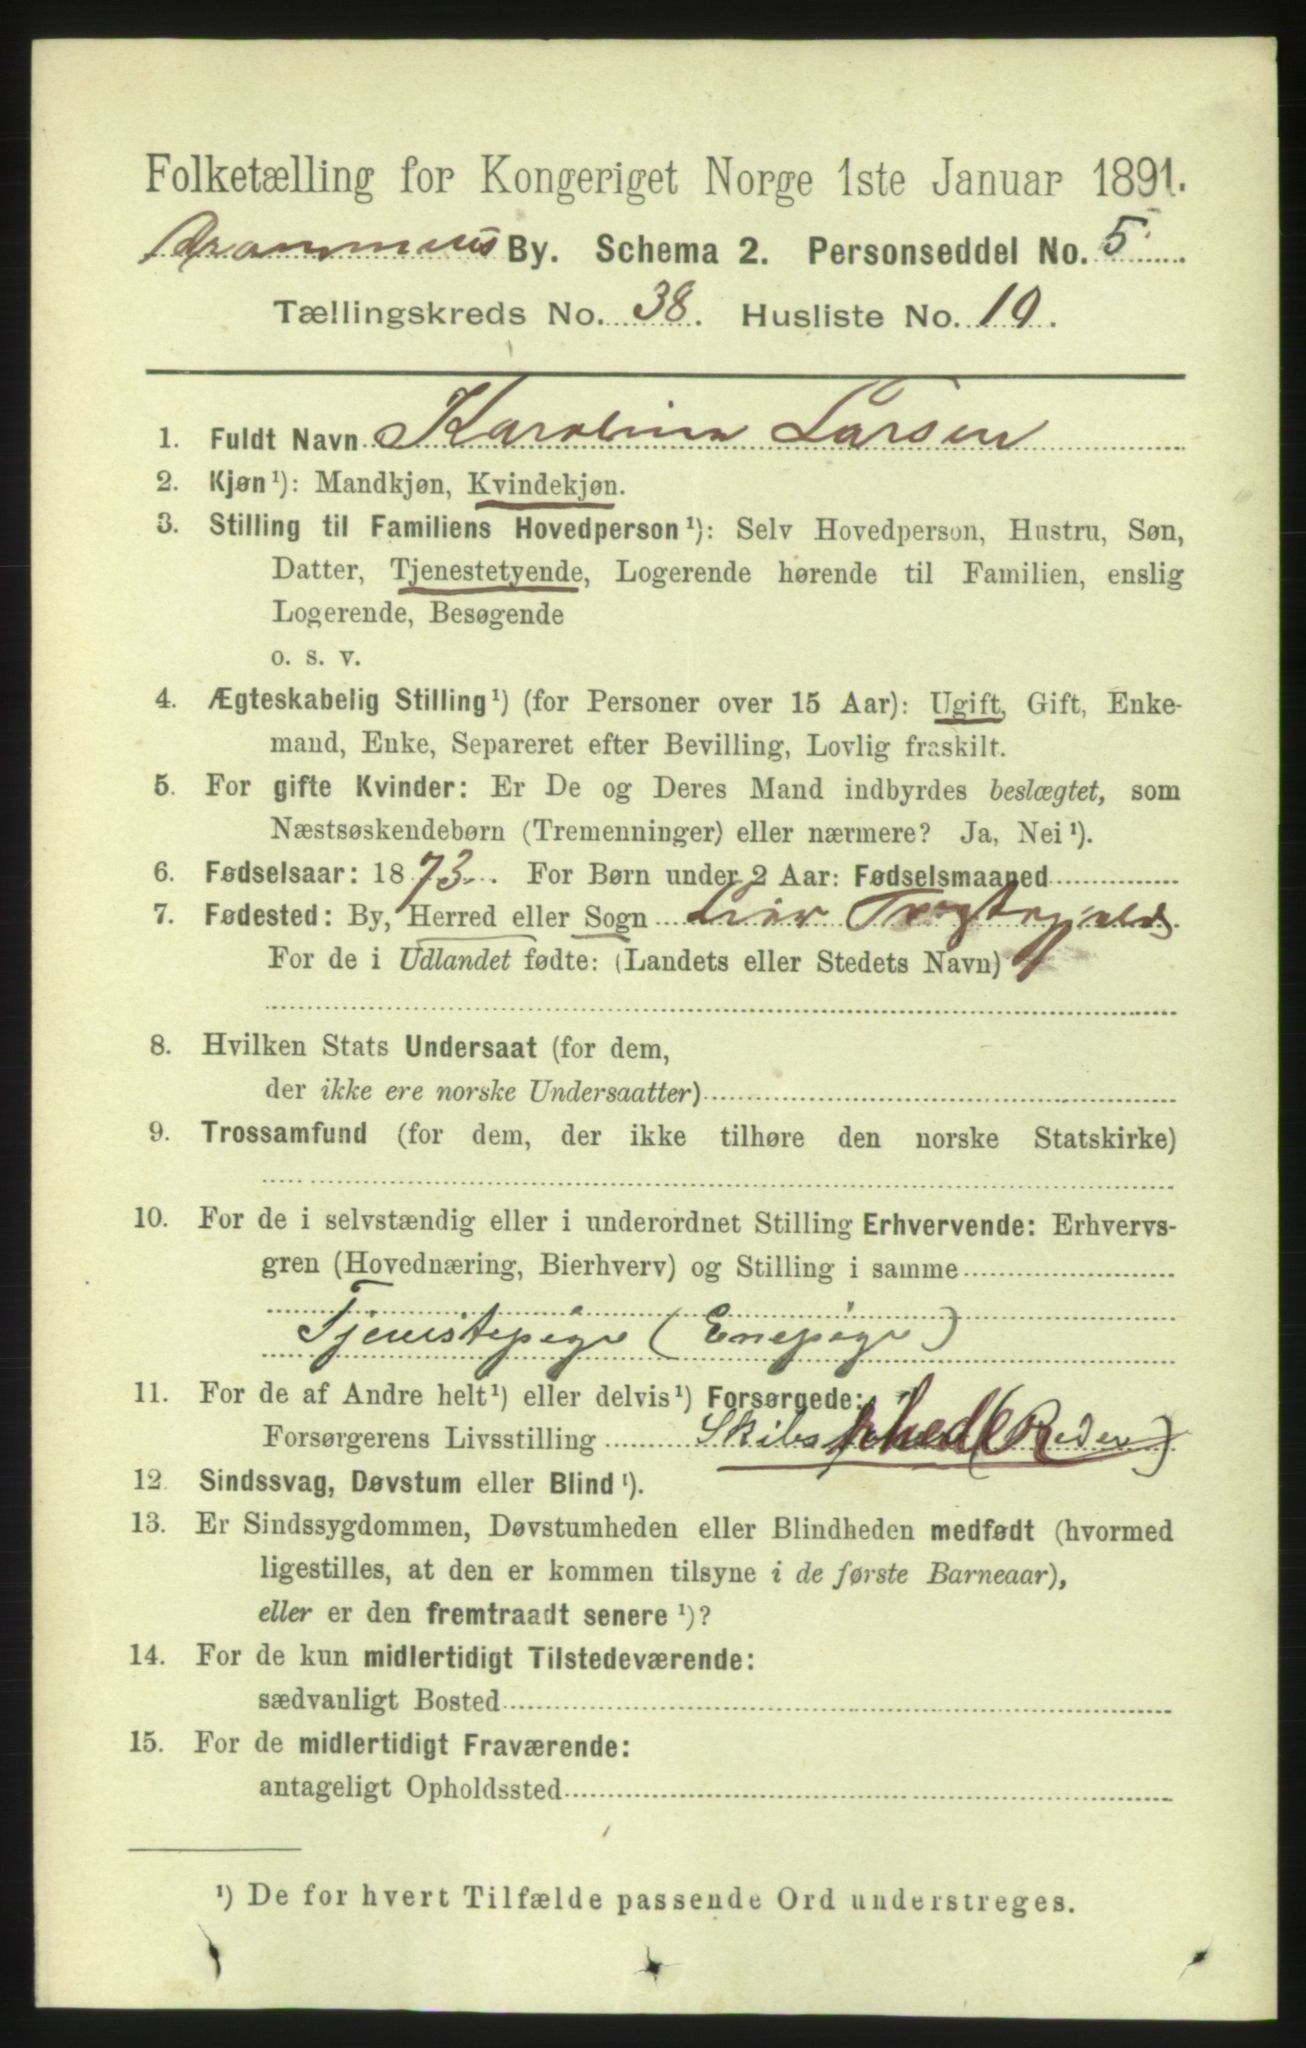 Folketælling for Kongeriget Norge 1ste Januar 1891.
Drammens By. Schema 2. Personseddel No. 5
Tællingskreds No. 38. Husliste No. 10.
1. Fuldt Navn Karolina Larsen
2. Kjøn¹): Mandkjøn, Kvindekjøn.
3. Stilling til Familiens Hovedperson¹): Selv Hovedperson, Hustru, Søn,
Datter, Tjenestetyende, Logerende hørende til Familien, enslig
Logerende, Besøgende
o. s. v.
4. Ægteskabelig Stilling¹) (for Personer over 15 Aar): Ugift, Gift, Enke-
mand, Enke, Separeret efter Bevilling, Lovlig fraskilt.
5. For gifte Kvinder: Er De og Deres Mand indbyrdes beslægtet, som
Næstsøskendebørn (Tremenninger) eller nærmere? Ja, Nei¹).
6. Fødselsaar: 1873. For Børn under 2 Aar: Fødselsmaaned
7. Fødested: By, Herred eller Sogn Lier
For de i Udlandet fødte: (Landets eller Stedets Navn)
8. Hvilken Stats Undersaat (for dem,
der ikke ere norske Undersaatter)
9. Trossamfund (for dem, der ikke tilhøre den norske Statskirke)
10. For de i selvstændig eller i underordnet Stilling Erhvervende: Erhvervs-
gren (Hovednæring, Bierhverv) og Stilling i samme
Tjenstepige (Enepige)
11. For de af Andre helt¹) eller delvis¹) Forsørgede:
Forsørgerens Livsstilling Skibs (Reder)
12. Sindssvag, Døvstum eller Blind¹).
13. Er Sindssygdommen, Døvstumheden eller Blindheden medfødt (hvormed
ligestilles, at den er kommen tilsyne i de første Barneaar),
eller er den fremtraadt senere¹)?
14. For de kun midlertidigt Tilstedeværende:
sædvanligt Bosted
15. For de midlertidigt Fraværende:
antageligt Opholdssted
¹) De for hvert Tilfælde passende Ord understreges.